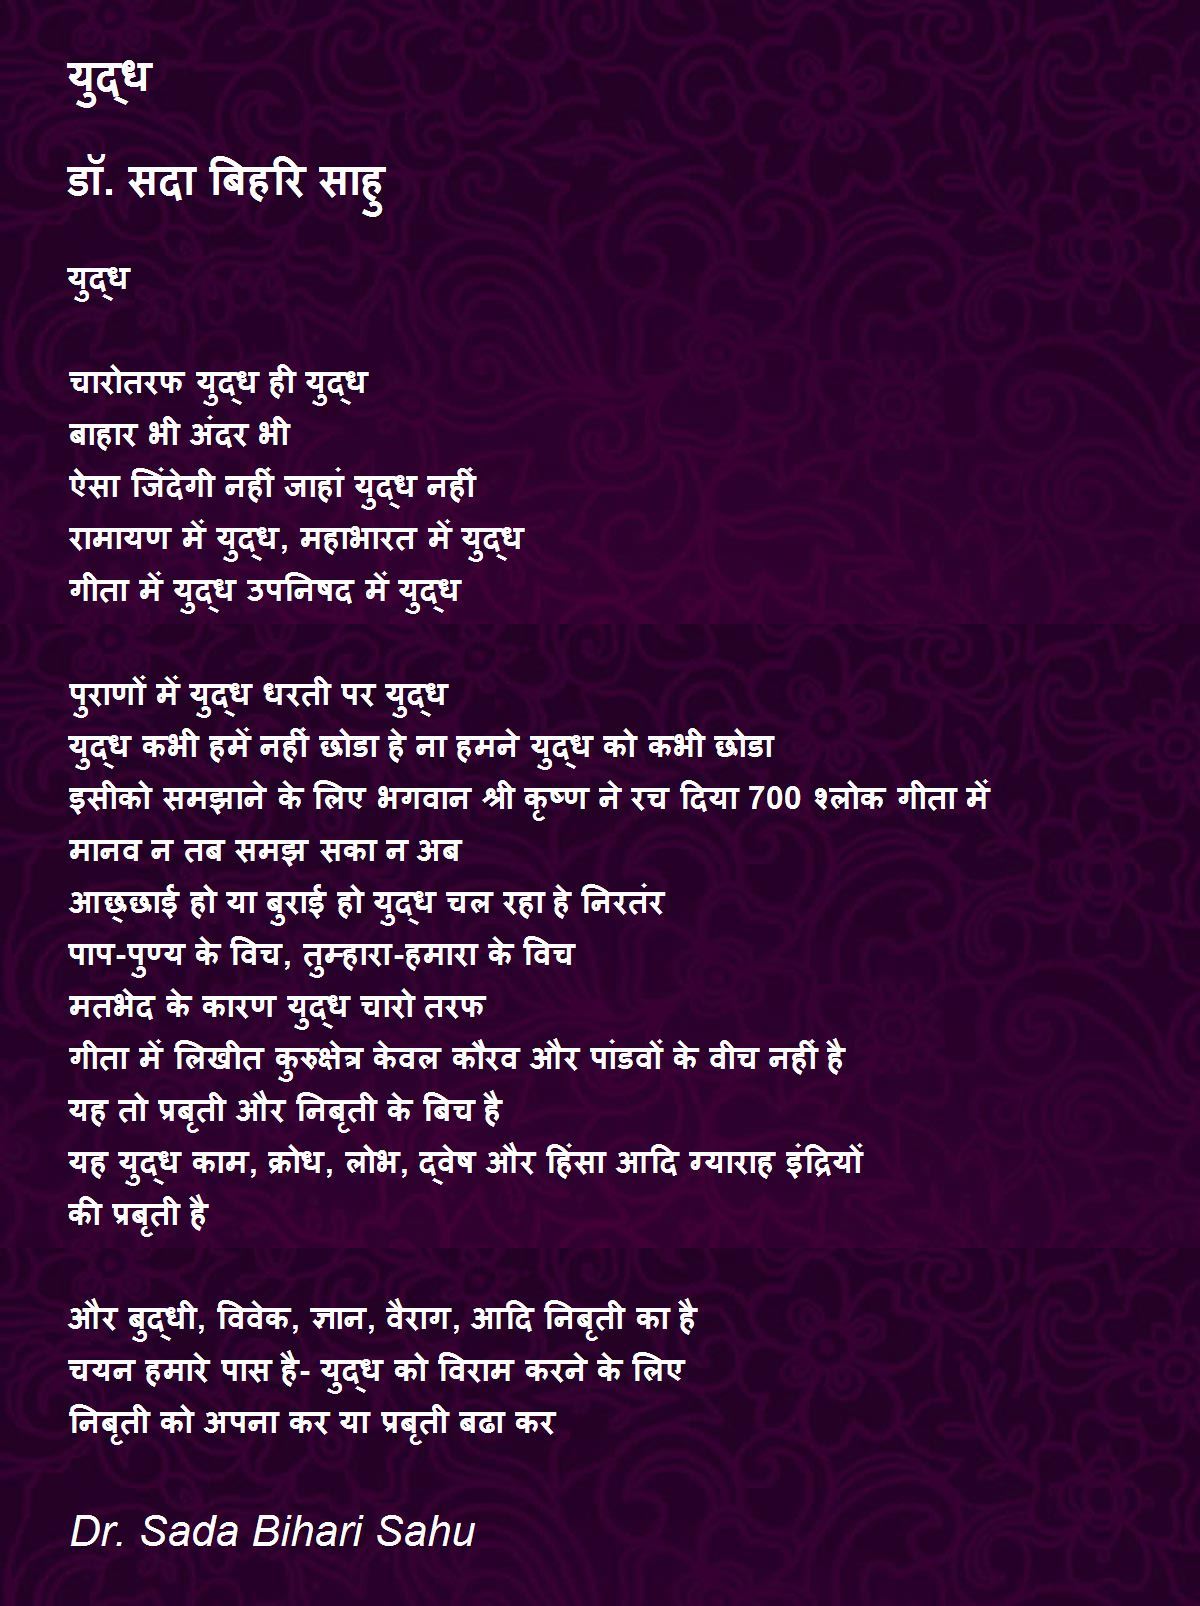 युद्ध
डॉ. सदा बिहरि साहु
युद्ध
चारोतरफ युद्ध ही युद्ध
बाहार भी अंदर भी
ऐसा जिंदेगी नहीं जाहां युद्ध नहीं
रामायण में युद्ध, महाभारत में युद्ध
गीता में युद्ध उपनिषद में युद्ध
पुराणों में युद्ध धरती पर युद्ध
युद्ध कभी हमें नहीं छोडा हे ना हमने युद्ध को कभी छोडा
इसीको समझाने के लिए भगवान श्री कृष्ण ने रच दिया 700 श्लोक गीता में
मानव न तब समझ सका न अब
आछ्छाई हो या बुराई हो युद्ध चल रहा हे निरतंर
पाप-पुण्य के विच, तुम्हारा-हमारा के विच
मतभेद के कारण युद्ध चारो तरफ
गीता में लिखीत कुरुक्षेत्र केवल कौरव और पांडवों के वीच नहीं है
यह तो प्रबृती और निबृती के बिच है
यह युद्ध काम, क्रोध, लोभ, द्वेष और हिंसा आदि ग्याराह इंद्रियों
की प्रबृती है
और बुद्धी, विवेक, ज्ञान, वैराग, आदि निबृती का है
चयन हमारे पास है- युद्ध को विराम करने के लिए
निबृती को अपना कर या प्रबृती बढा कर
Dr. Sada Bihari Sahu